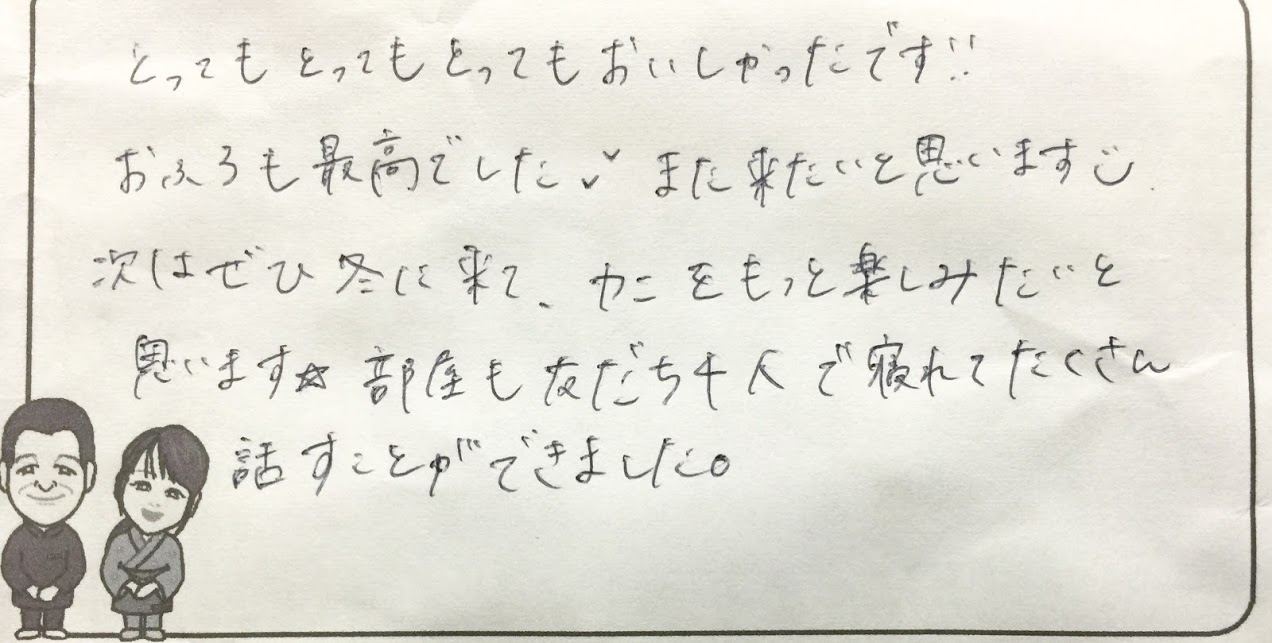 とってもとってもとってもおいしかったです!!
おふろも最高でした♡ また来たいと思います☺.
次はぜひ冬に来て、カニをもっと楽しみたいと
思います☆ 部屋も友だち4人で寝れてたくさん
話すことができました。